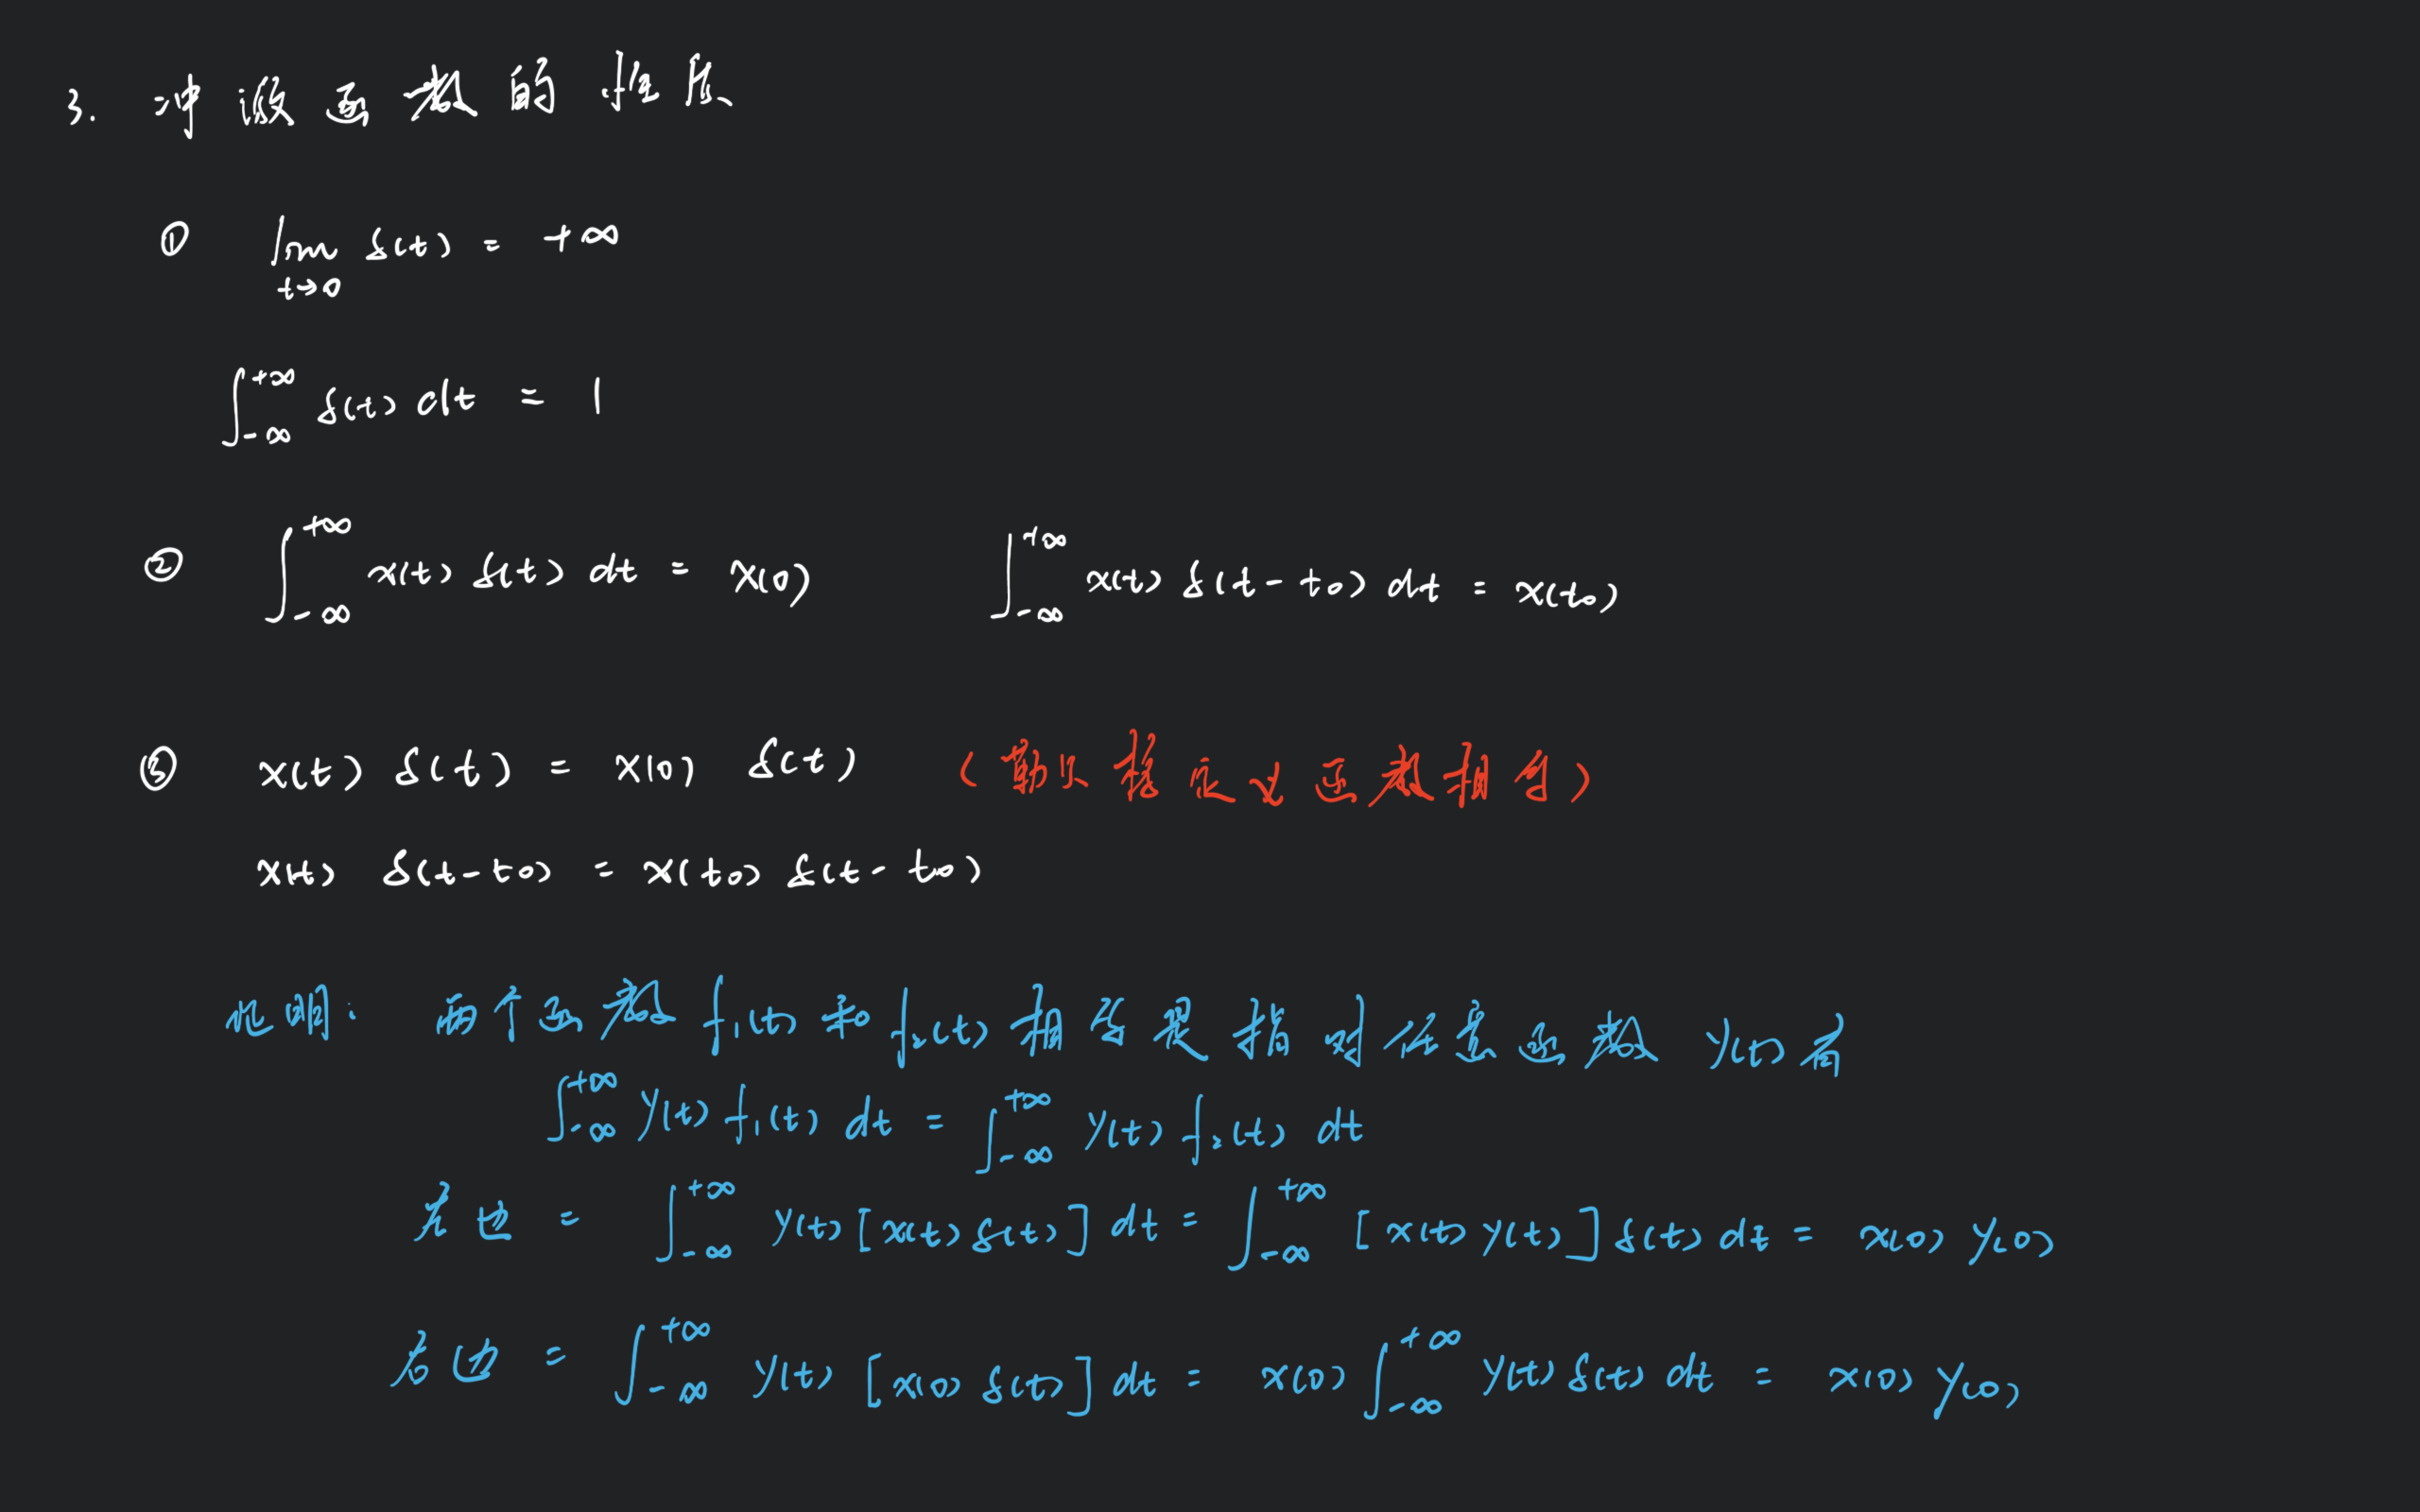 3. 冲激函数的性质
① lim δ(t) = +∞
t→0
∫_{-∞}^{+∞} δ(t) dt = 1
② ∫_{-∞}^{+∞} x(t) δ(t) dt = x(0)    ∫_{-∞}^{+∞} x(t) δ(t-t₀) dt = x(t₀)
③ x(t) δ(t) = x(0) δ(t) (勒贝格定义函数相等)
x(t) δ(t-t₀) = x(t₀) δ(t-t₀)
证明: 两个函数 f₁(t) 和 f₂(t) 相等是指对任意函数 y(t) 有
∫_{-∞}^{+∞} y(t) f₁(t) dt = ∫_{-∞}^{+∞} y(t) f₂(t) dt
左边 = ∫_{-∞}^{+∞} y(t) [x(t) δ(t)] dt = ∫_{-∞}^{+∞} [x(t) y(t)] δ(t) dt = x(0) y(0)
右边 = ∫_{-∞}^{+∞} y(t) [x(0) δ(t)] dt = x(0) ∫_{-∞}^{+∞} y(t) δ(t) dt = x(0) y(0)